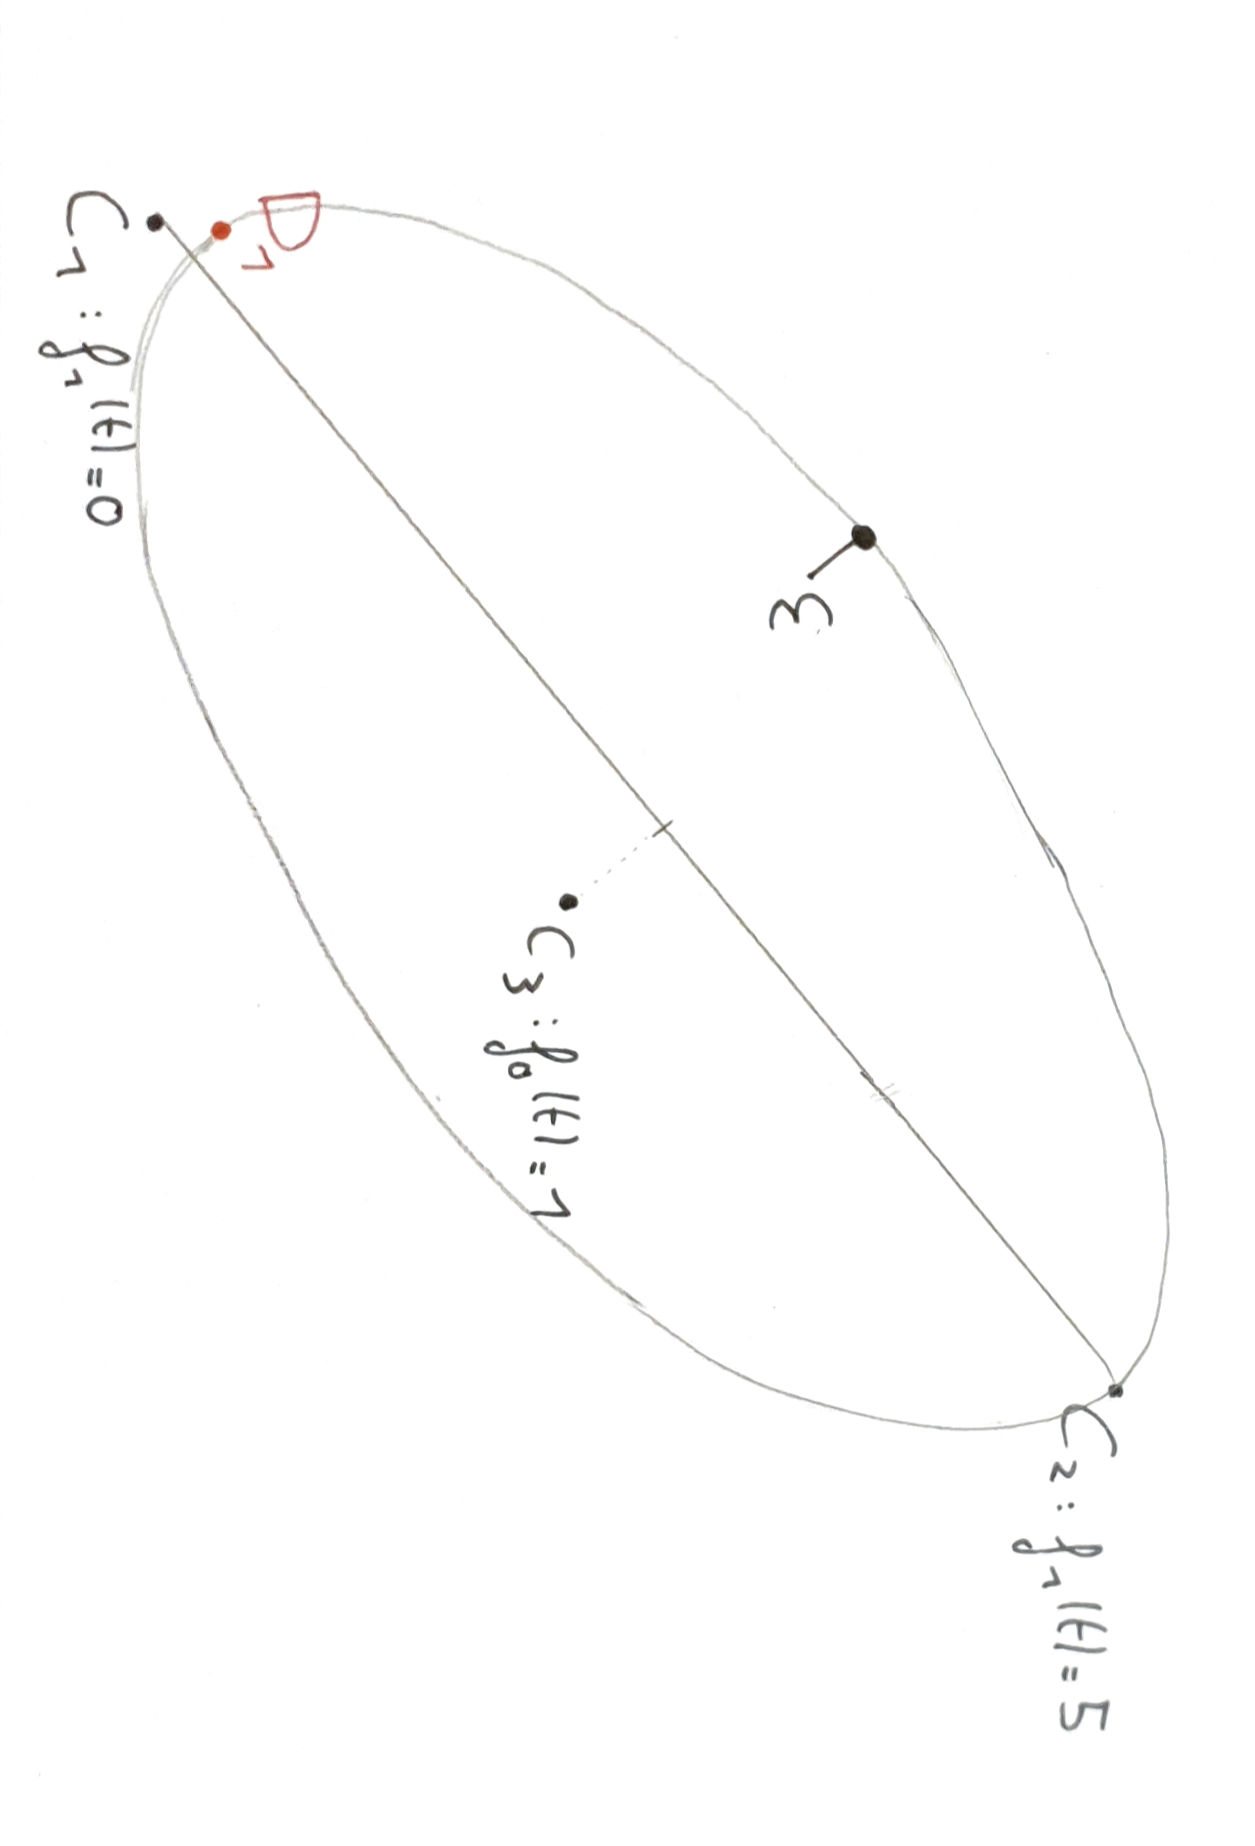 C₂ : f₁(t) = 5
ε
C₃ : f₀(t) = 1
D₁
C₁ : f₁(t) = 0